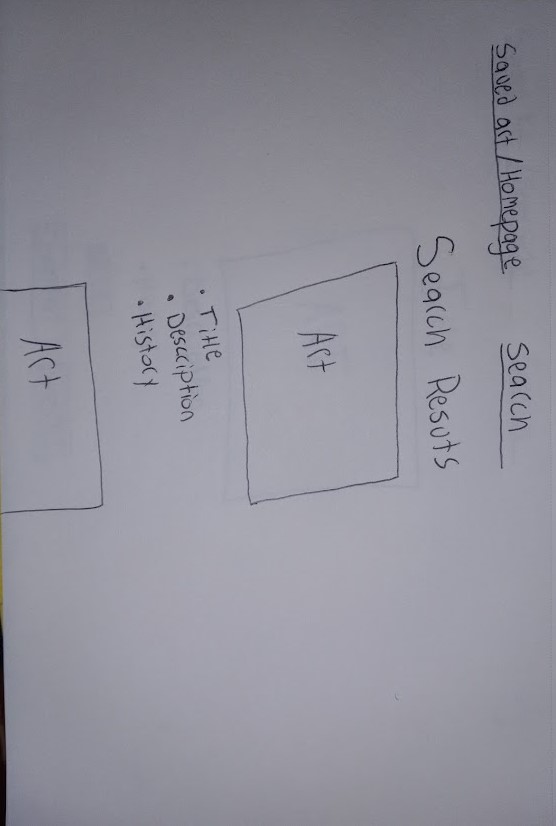 Saved art / Homepage Search
Search Resuts
Art
• Title
• Description
• History
Art